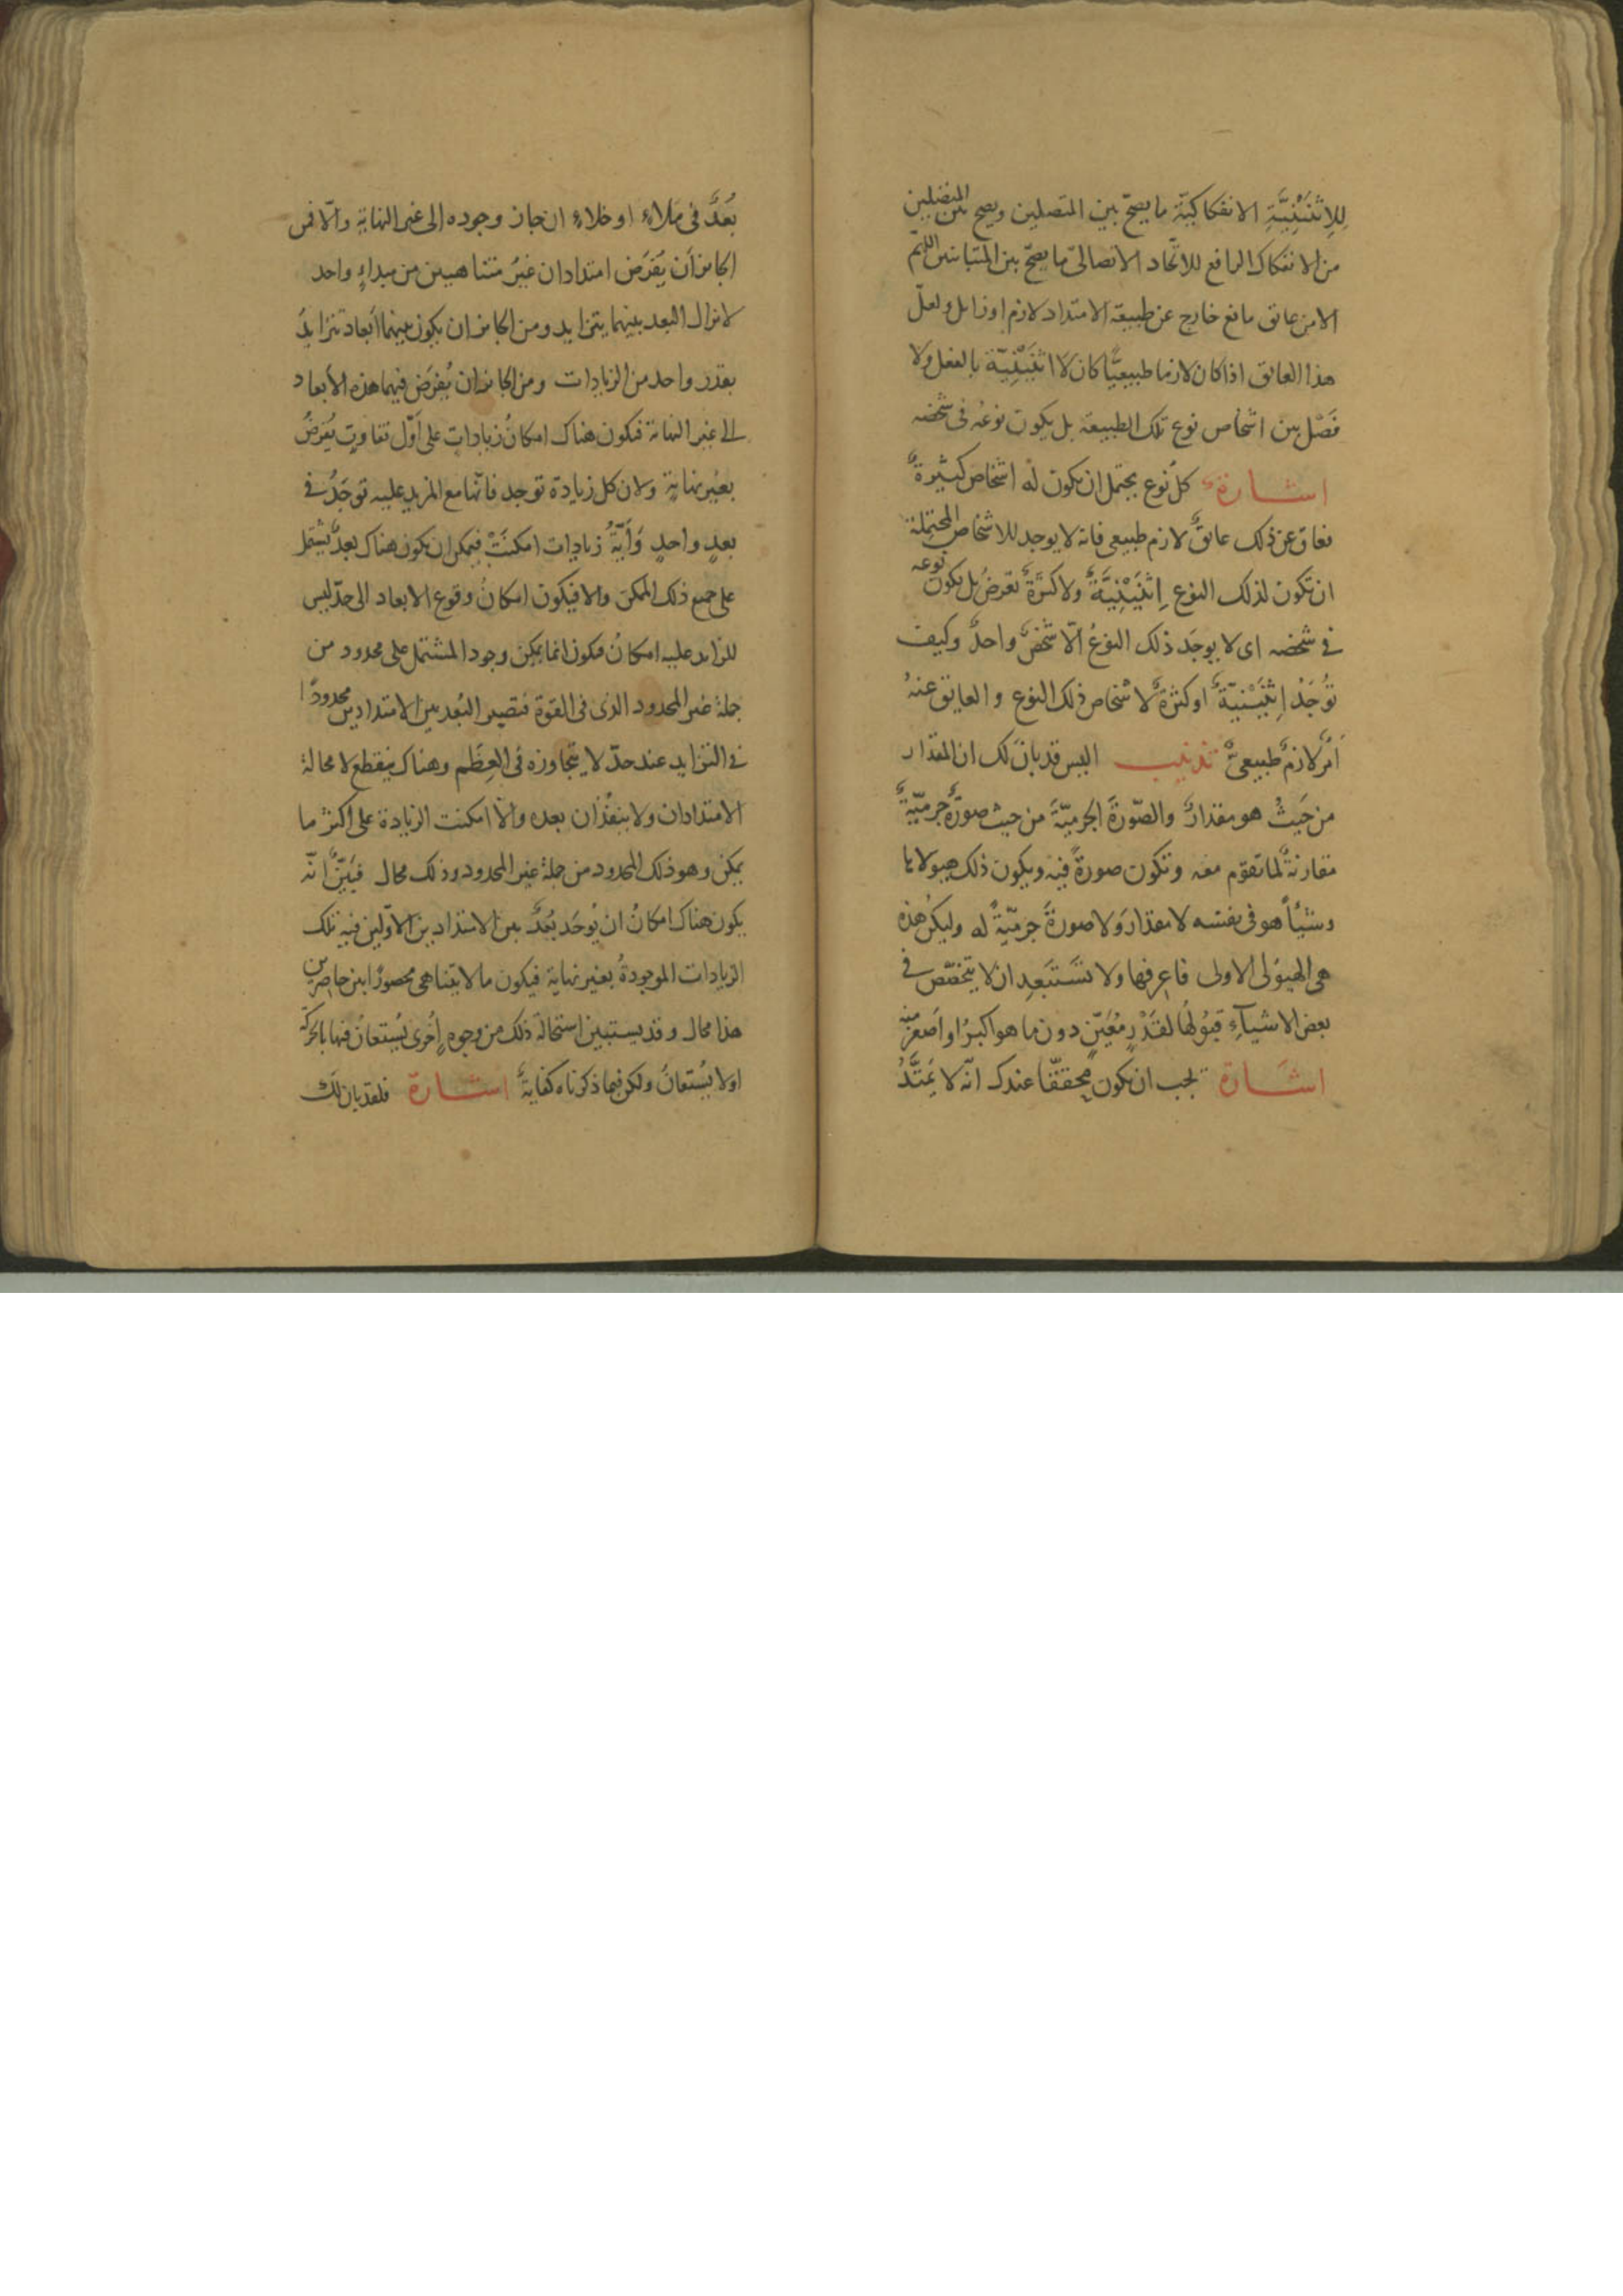 لِلاِثْنَيْنِيَّةِ الانفكاكيّة ما يصحّ بين المتصلين ويصح بين المنفصلين
من الانفكاك الرافع للاتّحاد الاتصالىّ ما يصحّ بين المتباينين اللهمّ
الا من عائق مانع خارج عن طبيعة الامتداد لازم او زايل ولعلّ
هذا العائق اذا كان لازما طبيعيًّا كان لا اثْنَيْنِيّة بالفعل ولا
فَصْل بين اشخاص نوع تلك الطبيعة بل يكون نوعه فى شخصه
اشارة كلّ نوع يحتمل ان يكون له اشخاص كثيرةٌ
فعاق عن ذلك عائقٌ لازم طبيعى فانه لا يوجد للاشخاص المحتملة
ان تكون لذلك النوع اِثْنَيْنِيَّةٌ ولا كثرةٌ تعرضُ بل يكون نوعه
فى شخصه اى لا يوجَد ذلك النوعُ الّا شخصٌ واحدٌ وكيف
تُوجَدُ اِثْنَيْنيّةٌ او كثرةٌ لاشخاص ذلك النوع والعايق عنهُ
اَمرٌ لازمٌ طبيعىٌّ تذنيب اليس قد بان لك ان المقدار
من حَيثُ هو مقدارٌ والصّورةَ الجرميّةَ من حيث صورةٌ جرميّةٌ
مقارنةٌ لما تقوّم معه وتكون صورةً فيه ويكون ذلك هيولا ها
وشيأً هو فى نفسه لا مقدارَ ولا صورةً جرميّةً له وليكن هذه
هى الهيولى الاولى فاعرفها ولا تستَبعِد ان لا يتخصّص فى
بعض الاشيآءِ قبُولهُا لقَدْرٍ مُعَيّنٍ دون ما هو اكبرُ او اَصغرُ منه
اشارة يجب ان يكون محققّا عندك انّه لا يَمتَدُّ
بُعدٌ فى ملاءٍ او خلاءٍ ان جاز وجوده الى غير النهاية والّا فمن
الجائز أن يُفرَض امتدادان غيرُ متناهيين من مبداءٍ واحد
لا يزال البعد بينهما يتزايد ومن الجائز ان يكون بينهما ابعاد تتزايدُ
بقدر واحد من الزيادات ومن الجائز ان يُفرَض فيهما هذه الأبعاد
الى غير النهاية فيكون هناك امكانُ زيادات على اَوّل تفاوتٍ يُفرَضُ
بغير نهايةٍ ولان كل زيادة توجد فانّها مع المزيد عليه توجَدُ فى
بعدٍ واحدٍ وَأَيَّةُ زيادات امكنَتْ فيمكن ان يكون هناك بعدٌ يشتمل
على جميع ذلك الممكن والا فيكون امكانُ وقوع الابعاد الى حدّ ليس
للزايد عليه امكانُ فيكون انما يمكن وجود المشتمل على محدود من
جملة غير المحدود الذى فى القوة فتصير البُعد بين الامتدادين محدودًا
فى التزايد عند حدّ لا يتجاوزه فى العِظَم وهناك ينقطع لا محالة
الامتدادان ولا ينفذان بعده والّا امكنت الزيادة على اكثر ما
يمكن وهو ذلك المحدود من جملة غير المحدود وذلك محال فبَيّنٌ انّه
يكون هناك امكانُ ان يُوجَد بُعدٌ بين الامتدادين الاوّلين فيه تلك
الزيادات الموجودةُ بغير نهاية فيكون ما لا يتناهى محصورًا بين حاصِرين
هذا محال وقد يستبين استحالة ذلك من وجوهٍ اُخرى يُستعانُ فيها بالحركة
اولا يُستعانُ ولكن فيما ذكرناه كفايةٌ اشارة فلقد بان لك